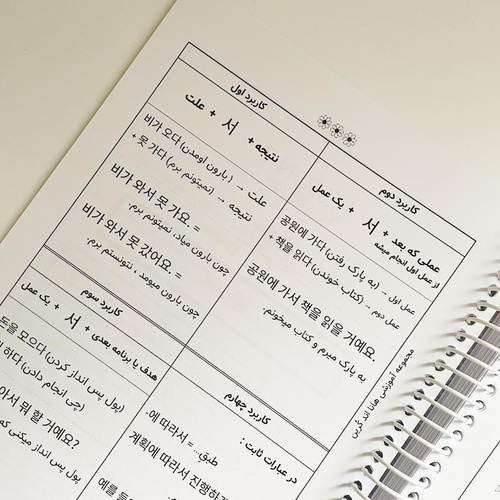 کاربرد اول
علت + 서 + نتیجه
علت → (بارون اومدن) 비가 오다
نتیجه → (نمیتونم برم) 못 가다 +
비가 와서 못 가요. =
چون بارون میاد، نمیتونم برم.
비가 와서 못 갔어요. =
چون بارون میومد ، نتونستم برم.
کاربرد دوم
یک عمل + 서 + عملی که بعد از عمل اول انجام میشه
عمل اول → (به پارک رفتن) 공원에 가다
عمل دوم → (کتاب خوندن) 책을 읽다 +
공원에 가서 책을 읽을 거예요.
به پارک میرم و کتاب میخونم.
کاربرد سوم
یک عمل + 서 + هدف یا برنامه بعدی
(پول پس انداز کردن) 돈을 모으다
(چی انجام دادن) 하다
아서 뭐 할 거예요?
پول پس انداز میکنی که
کاربرد چهارم
در عبارات ثابت :
طبقِ.. = .에 따라서
계획에 따라서 진행하
예를 들
مجموعه آموزشی هانا اند گرین